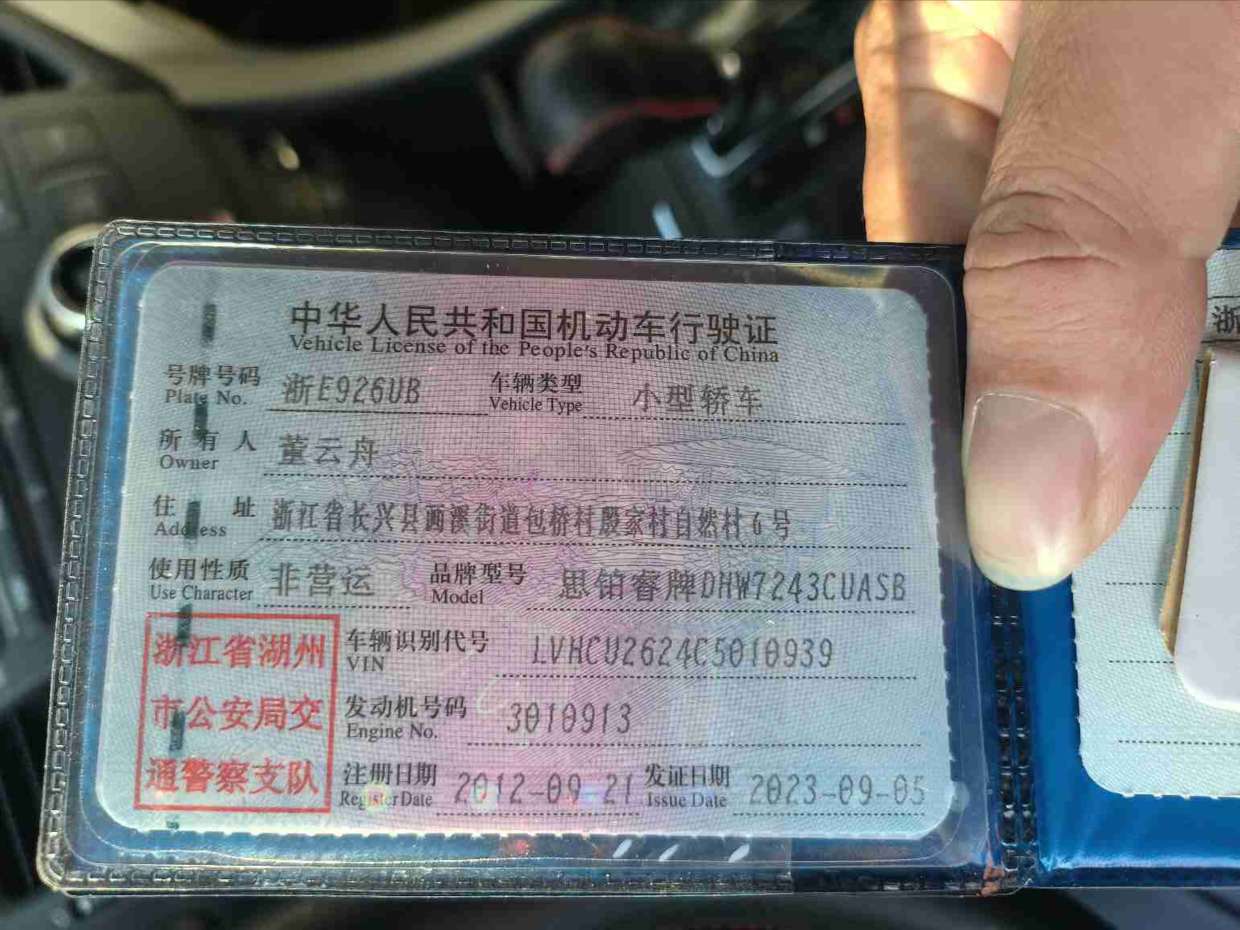 中华人民共和国机动车行驶证
Vehicle License of the People's Republic of China
号牌号码 浙E926UB 车辆类型 小型轿车
Plate No. Vehicle Type
所有人 董云舟
Owner
住址 浙江省长兴县画溪街道包桥村殷家村自然村6号
Address
使用性质 非营运 品牌型号 思铂睿牌DHW7243CUASB
Use Character Model
浙江省湖州
市公安局交
通警察支队
车辆识别代号 LVHCU2624C5010939
VIN
发动机号码 3010913
Engine No.
注册日期 2012-09-21 发证日期 2023-09-05
Register Date Issue Date
浙